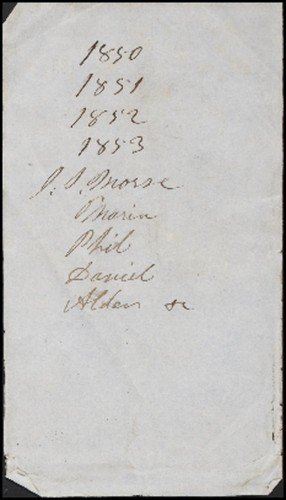 1850
1851
1852
1853
J. P. Morse
Marin
Phil
Daniel
Alden &c